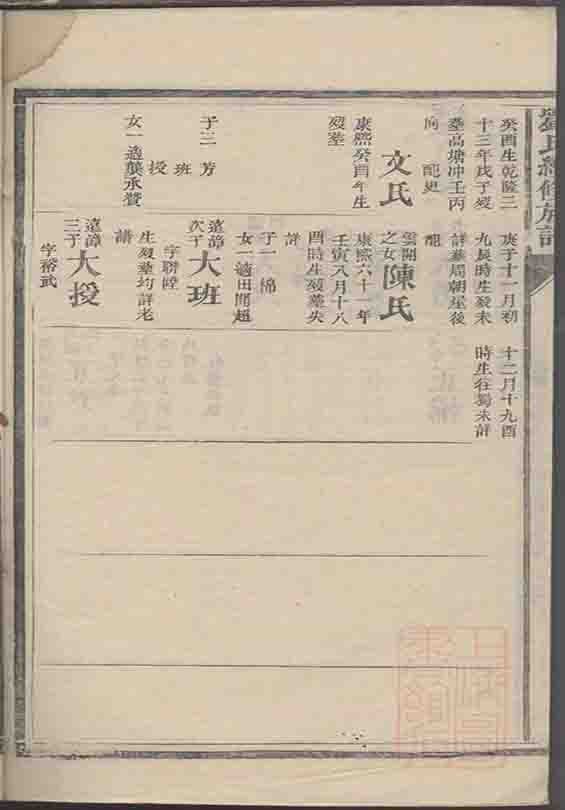 劉氏續修族譜
癸酉生乾隆三
十三年戊子歿
葬高塘冲壬丙
向 配
文氏
康熙癸酉年生
歿葬
子三 芳
班
授
女一適龔承贊
庚子十一月初
九辰時生歿未
詳葬周朝屋後
配
雲開
之女陳氏
康熙六十一年
壬寅八月十八
酉時生歿葬失
詳
子一 棉
女一適田開超
遠諱
次子大班
字聯陞
生歿葬均詳老
譜
遠諱
三子大授
字裕武
十二月十九酉
時生往蜀未詳